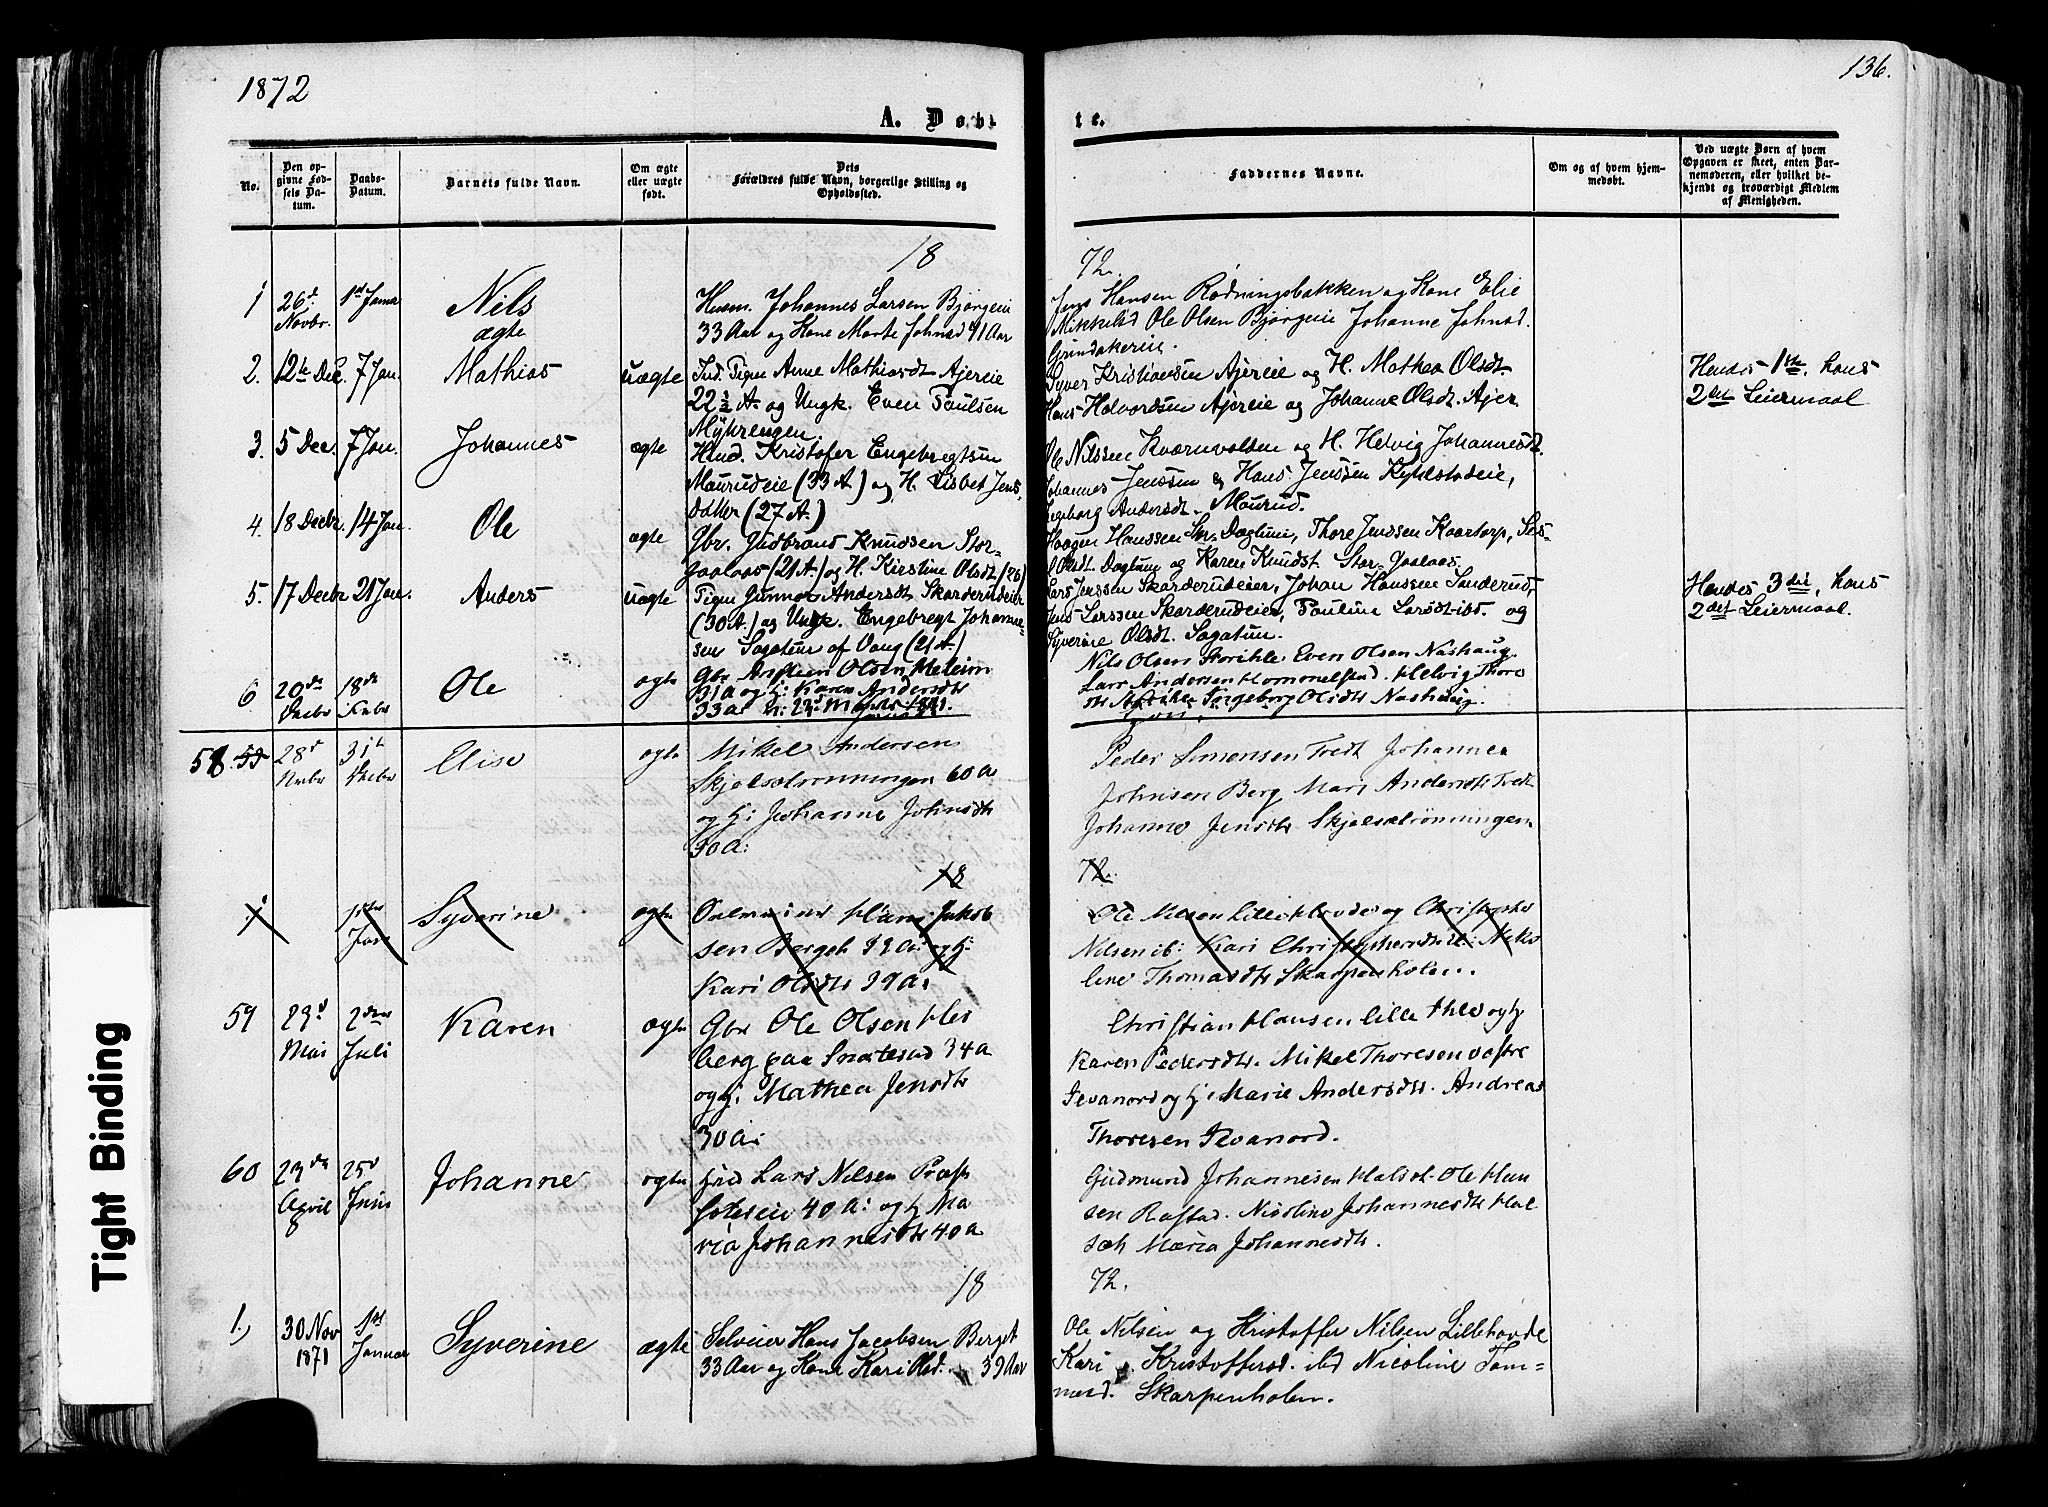 1872
136.
A. Døbte.
No.
Den opgivne Fødsels Datum.
Daabs-Datum.
Barnets fulde Navn.
Om ægte eller uægte født.
Dets Forældres fulde Navn, borgerlige Stilling og Opholdssted.
Faddernes Navne.
Om og af hvem hjemmedøbt.
Ved uægte Børn af hvem Opgaven er skeet, enten Barnemoderen, eller hvilket bekjendt og troværdigt Medlem af Menigheden.
18 72.
1 26d Novbr. 1st Janua Nils ægte
Husm. Johannes Larsen Bjørgeie
33 Aar og Kone Marte Johnsd 41 Aar
Jens Hansen Rødningsbakken og Kone Elie
Mikkelsd Ole Olsen Bjørgeie Johanne Johnsd.
Grindakereie.
2. 12te Dec. 7 Jan. Mathias uægte
Ind. Pigen Anne Mathiasdt Ajereie
22 1/2 A. og Ungk. Even Paulsen
Myhrengen
Syver Kristiansen Ajereie og H. Mathea Olsdt
Hans Halvordsen Ajereie og Johanne Olsdt. Ajer
Hendes 1ste, hans
2det Leiermaal
3. 5 Dec. 7 Jan. Johannes ægte
Hmd. Kristofer Engebregtsen
Maurudeie (33 A.) og H. Lisbet Jens
Datter (27 A.)
Ole Nilssen Kværnvolden og H. Helvig Johannesdt.
Johannes Jenssen & Hans Jenssen Kykelstadeie,
Ingeborg Andersdt. Maurud.
4. 18 Decbr. 14 Jan. Ole ægte
Gbr. Gudbrand Knudsen Stor-
Gaalaas (21 A.) og H. Kirstine Olsdt (26)
Haagen Hanssen Sn. Daglum, Thore Jenssen Kaartorp,
Olsdt. Daglum og Karen Knudst. Stor-Gaalaas.
5. 17 Decbr. 21 Jan. Anders uægte
Pigen Gunnor Andersdt. Skarderudeier
(30 A.) og Ungk. Engebregt Johanne-
sen Sagatun af Vang (21 A.)
Lars Jenssen Skarderudeier, Johan Hanssen Sanderud,
Jens Larssen Skarderudeier, Pauline Larsdt ibd. og
Syverine Olsdt. Sagatun.
Hendes 3die, hans
2det Leiermaal.
6 20de Decbr 18de Febr Ole ægte
Gbr Anfteen Olsen Meleim
og H: Karen Andersdtr
33 A:
Nils Olsen Storihle Even Olsen Nashaug.
Lars Andersen Hommelstad Helvig Thore
Ingeborg Olsdtr Nashaug.
58. 28d Nvbr 31te Decbr Elise ægte
Mikel Andersen
Skjelsætrønningen 60 A
og H: Johanne Johnsdtr
30 A:
Peder Simensen Tredt Johannes
Johnsen Berg Mari Andersdtr Tredt
Johanne Jensdtr Skjelsætrønningen.
18 72.
1. 1ster Jan Syverine ægte
Selveier Hans Jakob
sen Berget 33 A: og H:
Kari Olsdtr 39 A:
Ole Nilsen Lillehovde og Christopher
Nilsen ib: Kari Christophersdtr ib: Niko
line Thomasdtr Skarpenholen.
59 29d Mai 2den Juli Karen ægte
Gbr Ole Olsen Hes
berg paa Snatestad 34 A
og H: Mathea Jensdtr
30 A:
Christian Hansen Lille Ihle og H
Karen Pedersdtr. Mikel Thoresen Vestre
Jevanord og H: Marie Andersdtr. Andreas
Thoresen Jevanord.
60 23de April 25d Juni Johanne ægte
Hmd Lars Nilsen Præst
40 A: og H Ma
ria Johannesdtr 40 A
Gudmund Johannesen Halset. Ole Han
sen Rastad. Nicoline Johannesdtr Hal
set Maria Johannesdtr.
18 72.
1., 30 Nov 1871 1st Januar Syverine ægte
Selveier Hans Jacobsen Berget
33 Aar og Kone Kari Olsd. 39 Aar
Ole Nilsen og Kristoffer Nilsen Lillehovde
Kari Kristoffersd. ibd Nicoline Tom=
mesd. Skarpenholen.
Tight Binding